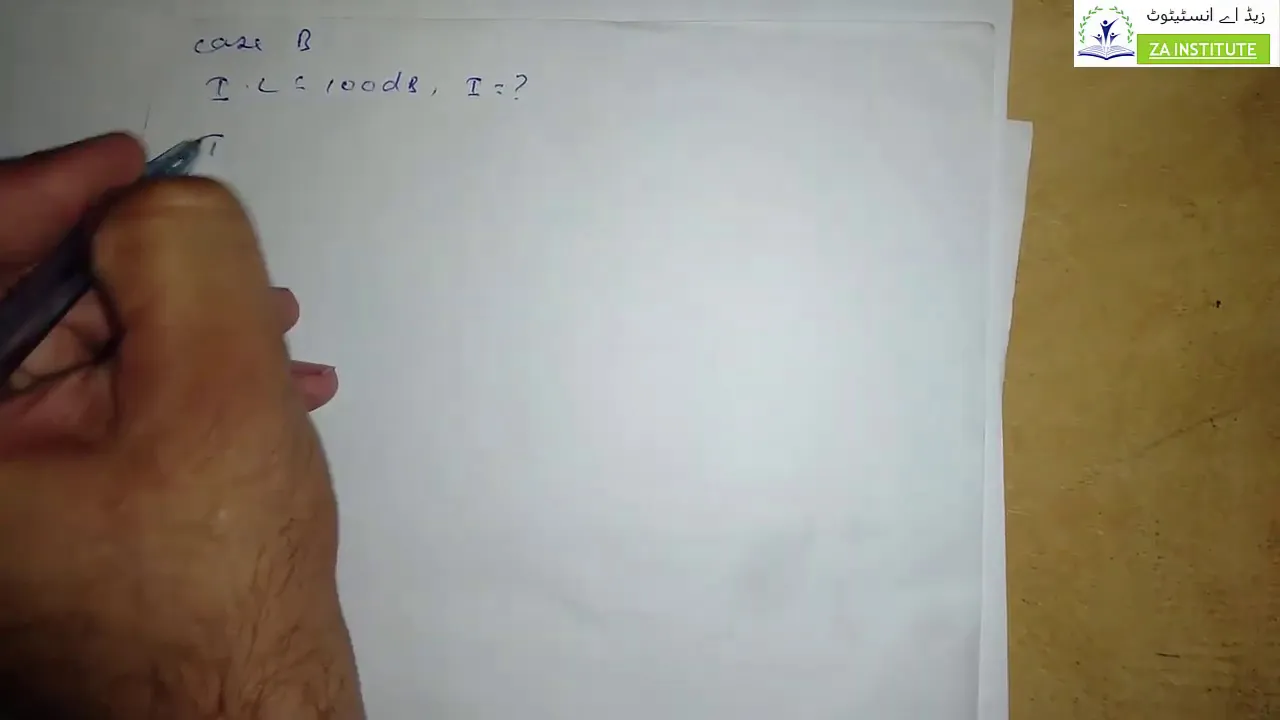 زیڈ اے انسٹیٹوٹ
ZA INSTITUTE
case B
I.L = 100dB, I = ?
I